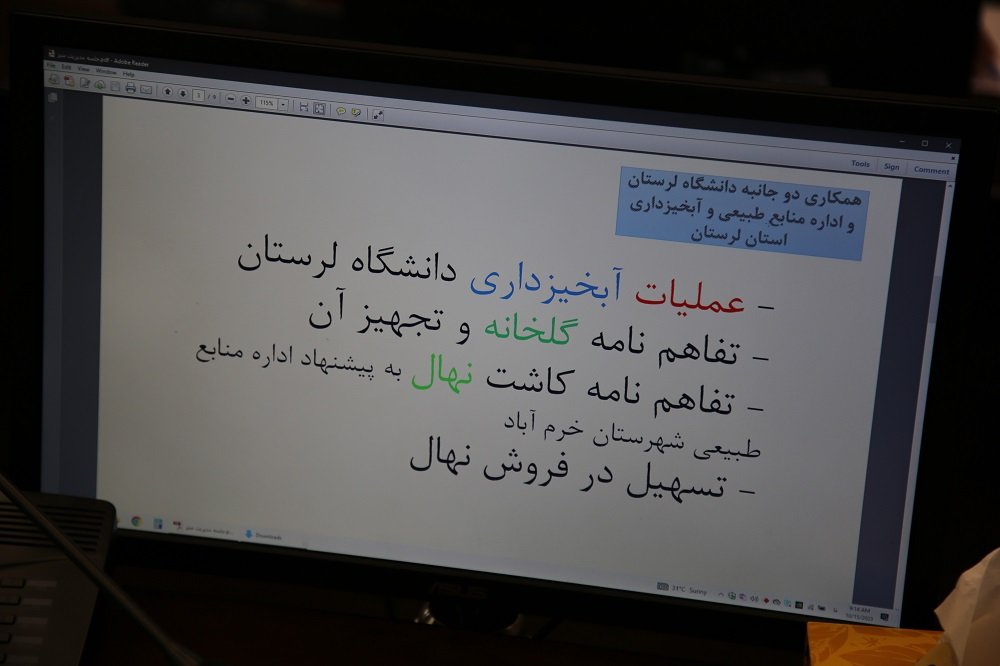 جلسه مدیریت سبز.pdf - Adobe Reader
File Edit View Window Help
3 / 9 115%
Tools Sign Comment
همکاری دو جانبه دانشگاه لرستان
و اداره منابع طبیعی و آبخیزداری
استان لرستان
- عملیات آبخیزداری دانشگاه لرستان
- تفاهم نامه گلخانه و تجهیز آن
- تفاهم نامه کاشت نهال به پیشنهاد اداره منابع
طبیعی شهرستان خرم آباد
- تسهیل در فروش نهال
جلسه مدیریت سبز.p...
Downloads
31°C Sunny
9:14 AM
10/15/2023
ASUS